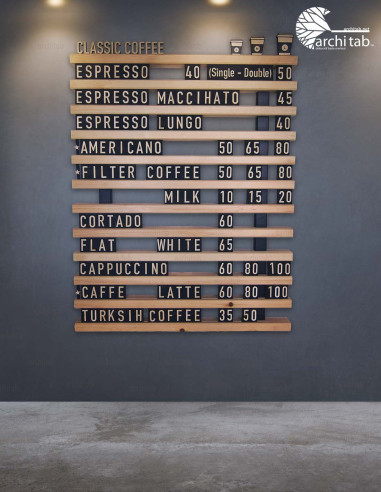 architab.net
architab
CLASSIC COFFEE
ESPRESSO 40 (Single - Double) 50
ESPRESSO MACCIHATO 45
ESPRESSO LUNGO 40
*AMERICANO 50 65 80
*FILTER COFFEE 50 65 80
MILK 10 15 20
CORTADO 60
FLAT WHITE 65
CAPPUCCINO 60 80 100
*CAFFE LATTE 60 80 100
TURKSIH COFFEE 35 50